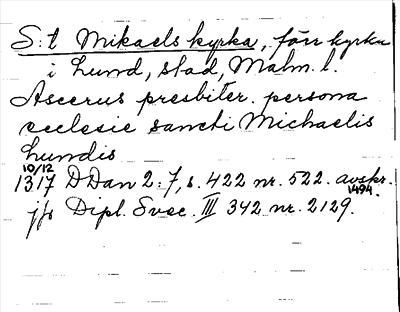 S:t Mikaels kyrka, förr kyrka
i Lund, stad, Malm. l.
Ascerus presbiter. persona
ecclesie sancti Michaelis
Lundis
10/12
1317 DDan 2:7, s. 422 nr. 522. avskr. 1494.
jfr Dipl. Svec. III 342 nr. 2129.